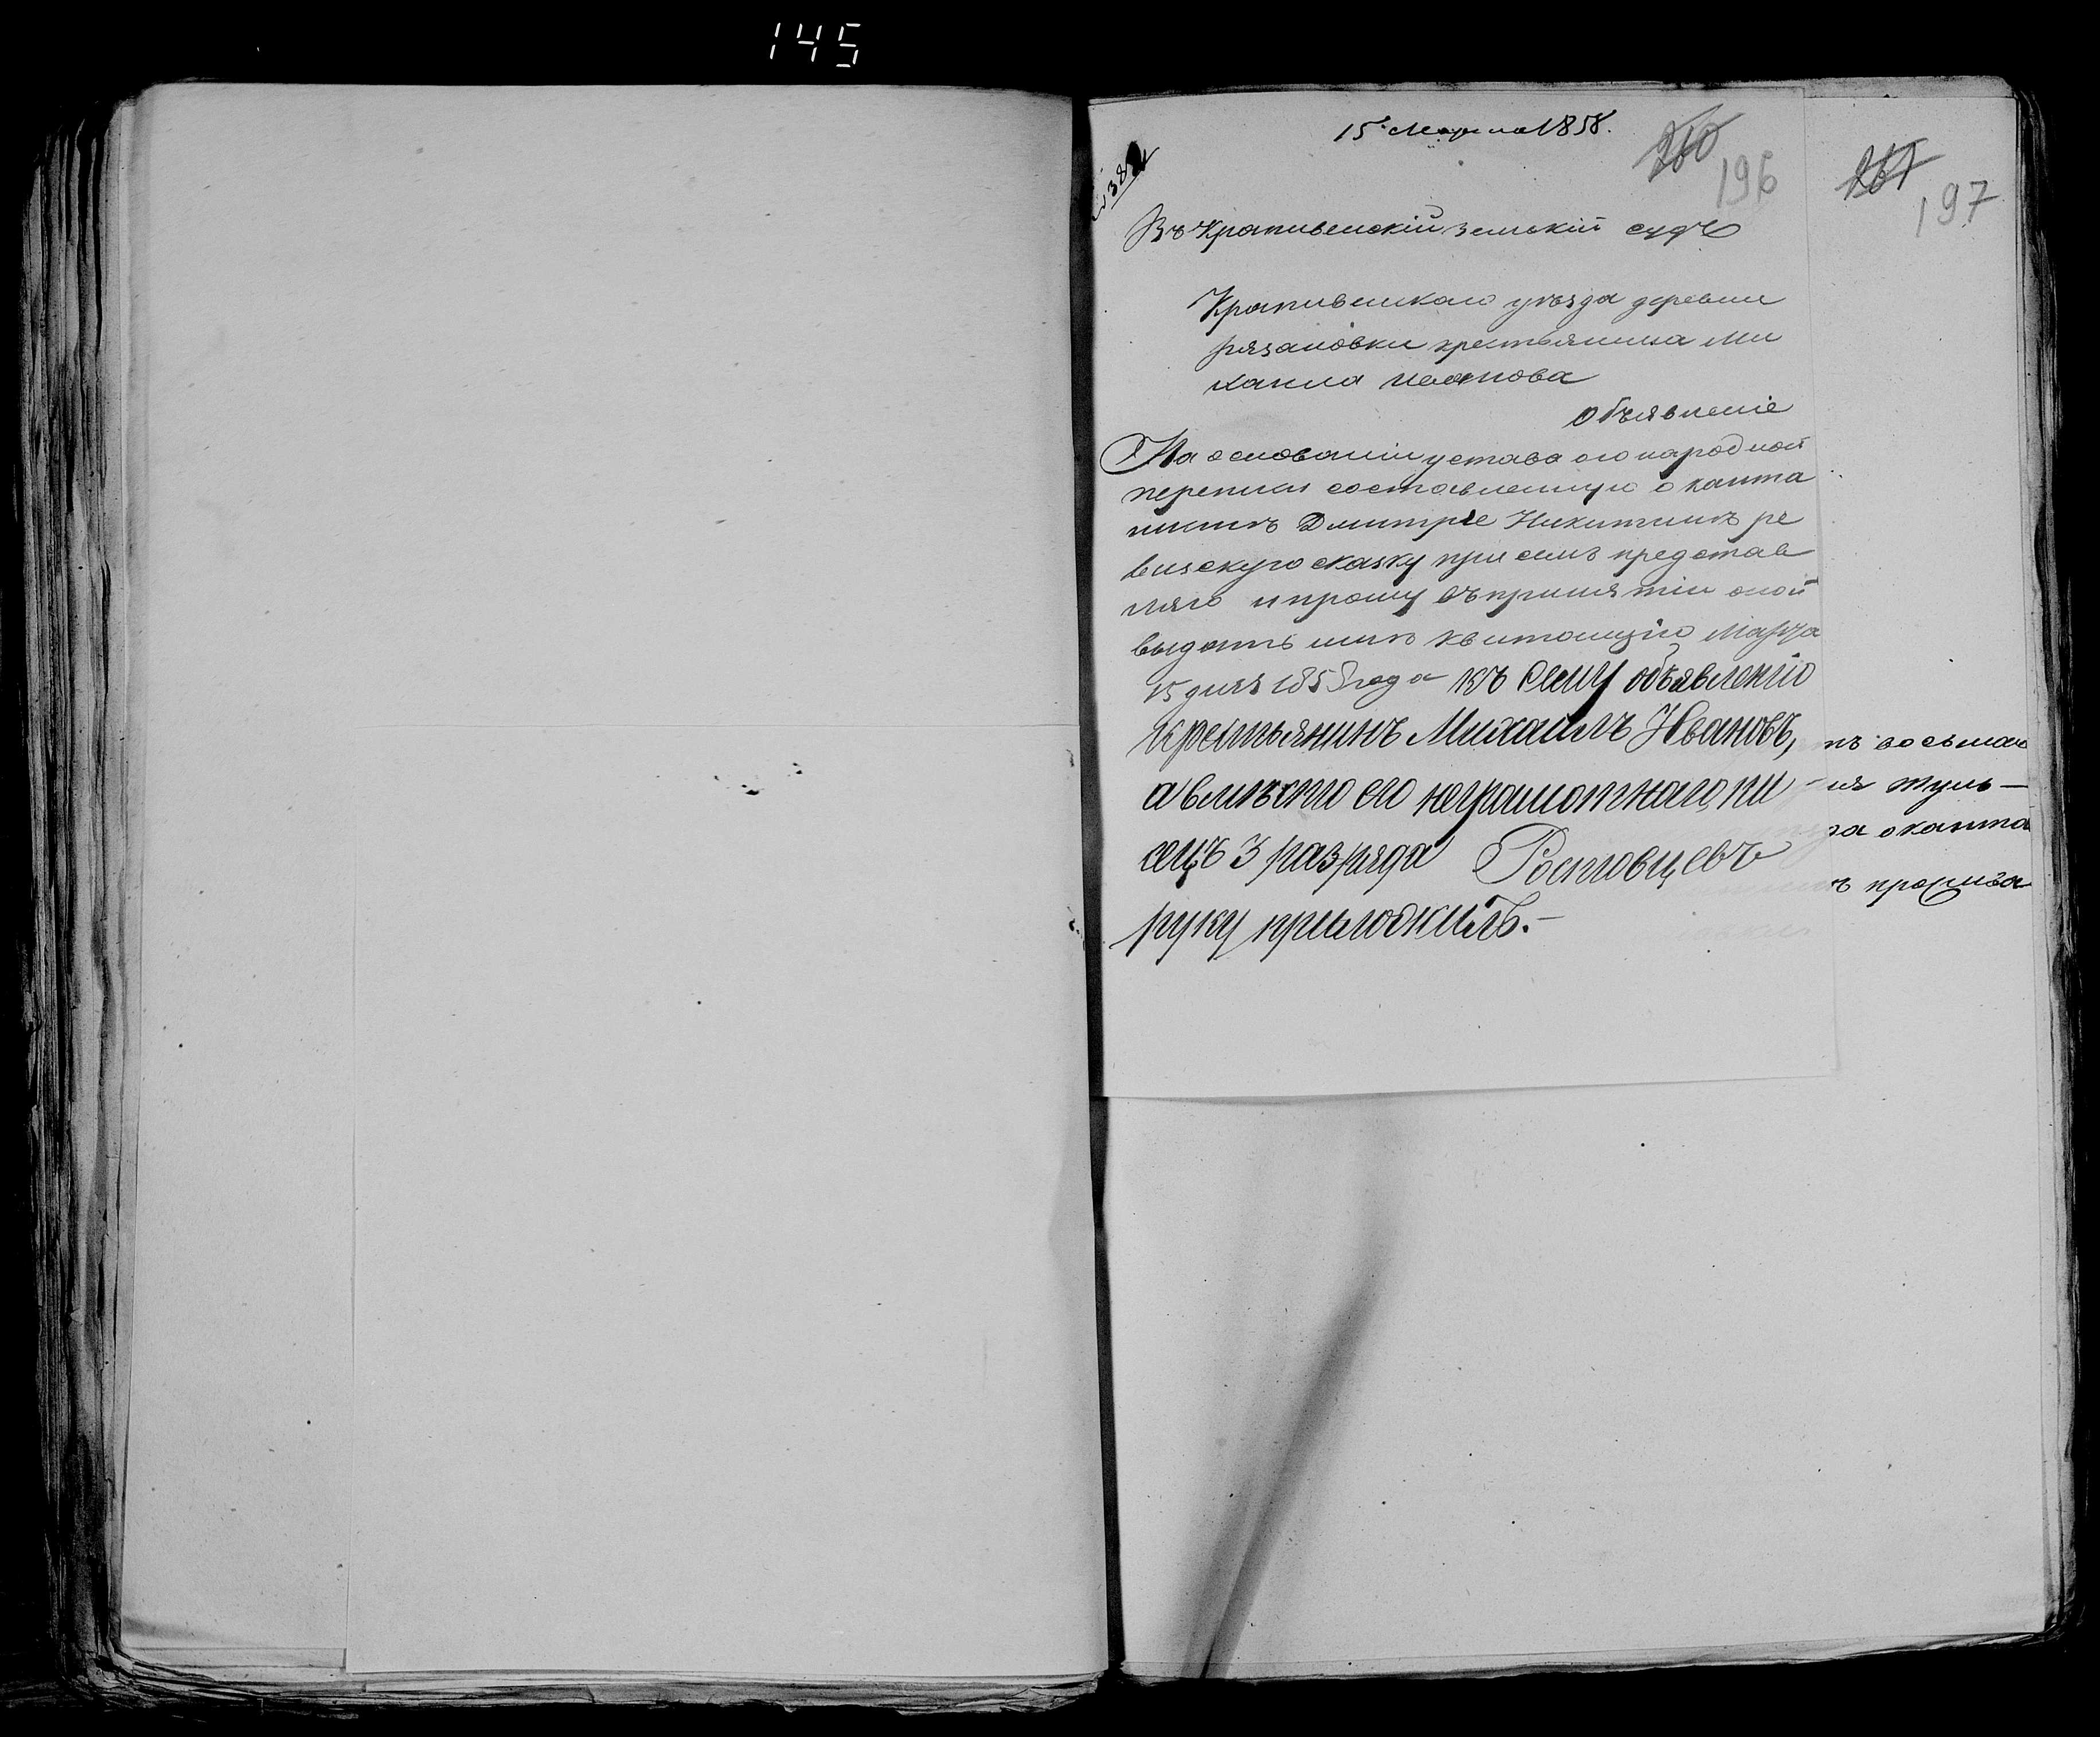 145
15 Марта 1858.
260
196
267
197
Въ Крапивенскій земскій судъ
Крапивенскаго уѣзда деревни
рязановки крестьянина Ми
хаила иванова
Объявленіе
На основаніи устава о народной
переписи составленную о канта
нистѣ Дмитрie Никитинѣ ре
визскую сказку при семъ представ
ляю и прошу въ принятіи оной
выдать мнѣ квитанцію Марта
15 дня 1858 года Къ сему объявленію
крестьянинъ Михаилъ Ивановъ,
а вмѣсто его неграмотнаго, пи
сецъ 3 разряда Ростовцевъ
руку приложилъ.—
восьмаго
туль—
о канта